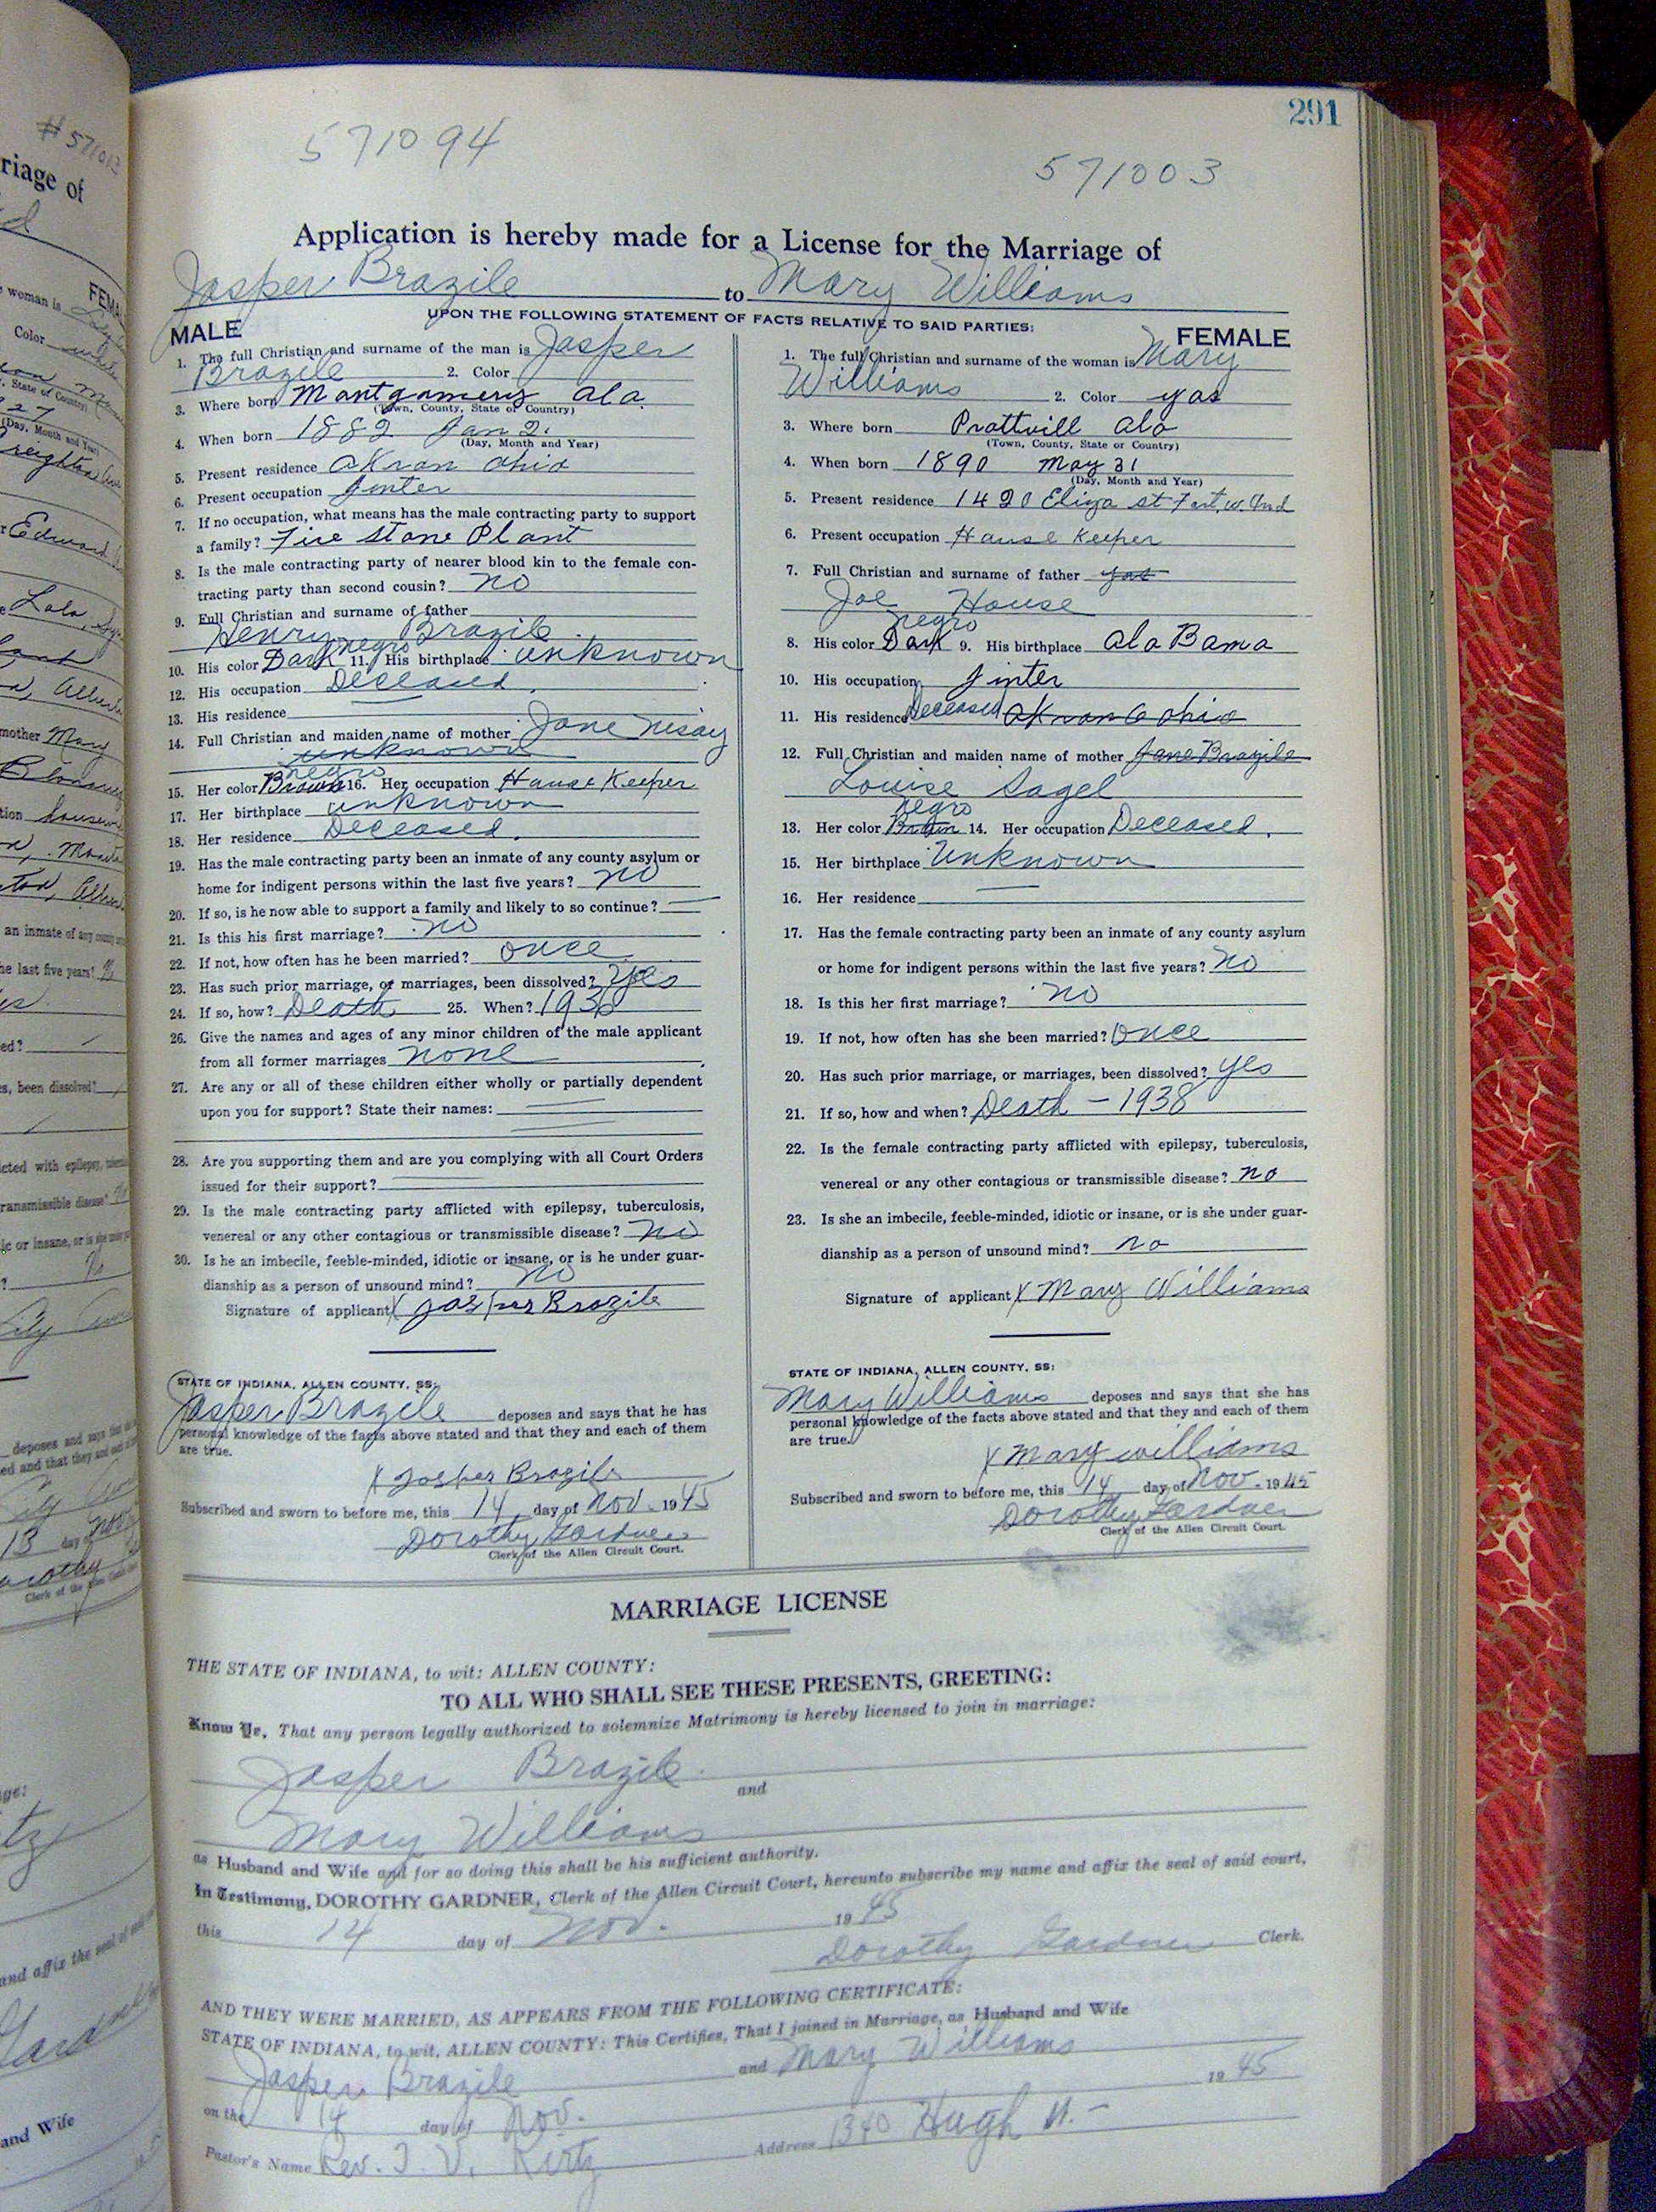 291
571094
571003
Application is hereby made for a License for the Marriage of
Jasper Brazile to Mary Williams
UPON THE FOLLOWING STATEMENT OF FACTS RELATIVE TO SAID PARTIES:
MALE
1. The full Christian and surname of the man is Jasper
Brazile 2. Color
3. Where born Montgomery Ala.
(Town, County, State or Country)
4. When born 1882 Jan 2.
(Day, Month and Year)
5. Present residence Akron Ohio
6. Present occupation Jinter
7. If no occupation, what means has the male contracting party to support
a family? Fire Stone Plant
8. Is the male contracting party of nearer blood kin to the female con-
tracting party than second cousin? no
9. Full Christian and surname of father
Henry Brazile
negro
10. His color Dark 11. His birthplace unknown
12. His occupation Deceased.
13. His residence
14. Full Christian and maiden name of mother Jane
unknown
negro
15. Her color Brown 16. Her occupation House Keeper
17. Her birthplace unknown
18. Her residence Deceased.
19. Has the male contracting party been an inmate of any county asylum or
home for indigent persons within the last five years? no
20. If so, is he now able to support a family and likely to so continue?
21. Is this his first marriage? no
22. If not, how often has he been married? once
23. Has such prior marriage, or marriages, been dissolved? yes
24. If so, how? Death 25. When?
26. Give the names and ages of any minor children of the male applicant
from all former marriages none
27. Are any or all of these children either wholly or partially dependent
upon you for support? State their names:
28. Are you supporting them and are you complying with all Court Orders
issued for their support?
29. Is the male contracting party afflicted with epilepsy, tuberculosis,
venereal or any other contagious or transmissible disease? no
30. Is he an imbecile, feeble-minded, idiotic or insane, or is he under guar-
dianship as a person of unsound mind? no
Signature of applicant X Jasper Brazile
STATE OF INDIANA, ALLEN COUNTY, SS:
Jasper Brazile deposes and says that he has
personal knowledge of the facts above stated and that they and each of them
are true.
X Jasper Brazile
Subscribed and sworn to before me, this 14 day of Nov. 1945
Dorothy Gardner
Clerk of the Allen Circuit Court.
FEMALE
1. The full Christian and surname of the woman is Mary
Williams 2. Color yas
3. Where born Prattvill Ala
(Town, County, State or Country)
4. When born 1890 May 31
(Day, Month and Year)
5. Present residence 1420 Eliza st Fort. W. Ind
6. Present occupation House Keeper
7. Full Christian and surname of father yas
Joe House
negro
8. His color Dark 9. His birthplace Ala Bama
10. His occupation Jinter
11. His residence Deceased Akron Ohio
12. Full Christian and maiden name of mother Jane Brazile
Louise Sagel
negro
13. Her color Brown 14. Her occupation Deceased.
15. Her birthplace Unknown
16. Her residence
17. Has the female contracting party been an inmate of any county asylum
or home for indigent persons within the last five years? no
18. Is this her first marriage? no
19. If not, how often has she been married? Once
20. Has such prior marriage, or marriages, been dissolved? yes
21. If so, how and when? Death - 1938
22. Is the female contracting party afflicted with epilepsy, tuberculosis,
venereal or any other contagious or transmissible disease? no
23. Is she an imbecile, feeble-minded, idiotic or insane, or is she under guar-
dianship as a person of unsound mind? no
Signature of applicant X Mary Williams
STATE OF INDIANA, ALLEN COUNTY, SS:
Mary Williams deposes and says that she has
personal knowledge of the facts above stated and that they and each of them
are true.
X Mary Williams
Subscribed and sworn to before me, this 14 day of Nov. 1945
Dorothy Gardner
Clerk of the Allen Circuit Court.
MARRIAGE LICENSE
THE STATE OF INDIANA, to wit: ALLEN COUNTY:
TO ALL WHO SHALL SEE THESE PRESENTS, GREETING:
Know Ye, That any person legally authorized to solemnize Matrimony is hereby licensed to join in marriage:
Jasper Brazile and
Mary Williams
as Husband and Wife and for so doing this shall be his sufficient authority.
In Testimony, DOROTHY GARDNER, Clerk of the Allen Circuit Court, hereunto subscribe my name and affix the seal of said court,
this 14 day of Nov. 1945
Dorothy Gardner Clerk.
AND THEY WERE MARRIED, AS APPEARS FROM THE FOLLOWING CERTIFICATE:
STATE OF INDIANA, to wit, ALLEN COUNTY: This Certifies, That I joined in Marriage, as Husband and Wife
Jasper Brazile and Mary Williams
on the 14 day of Nov. 1945
Pastor's Name Rev. I. V. Kirtz Address 1340 Hugh St.